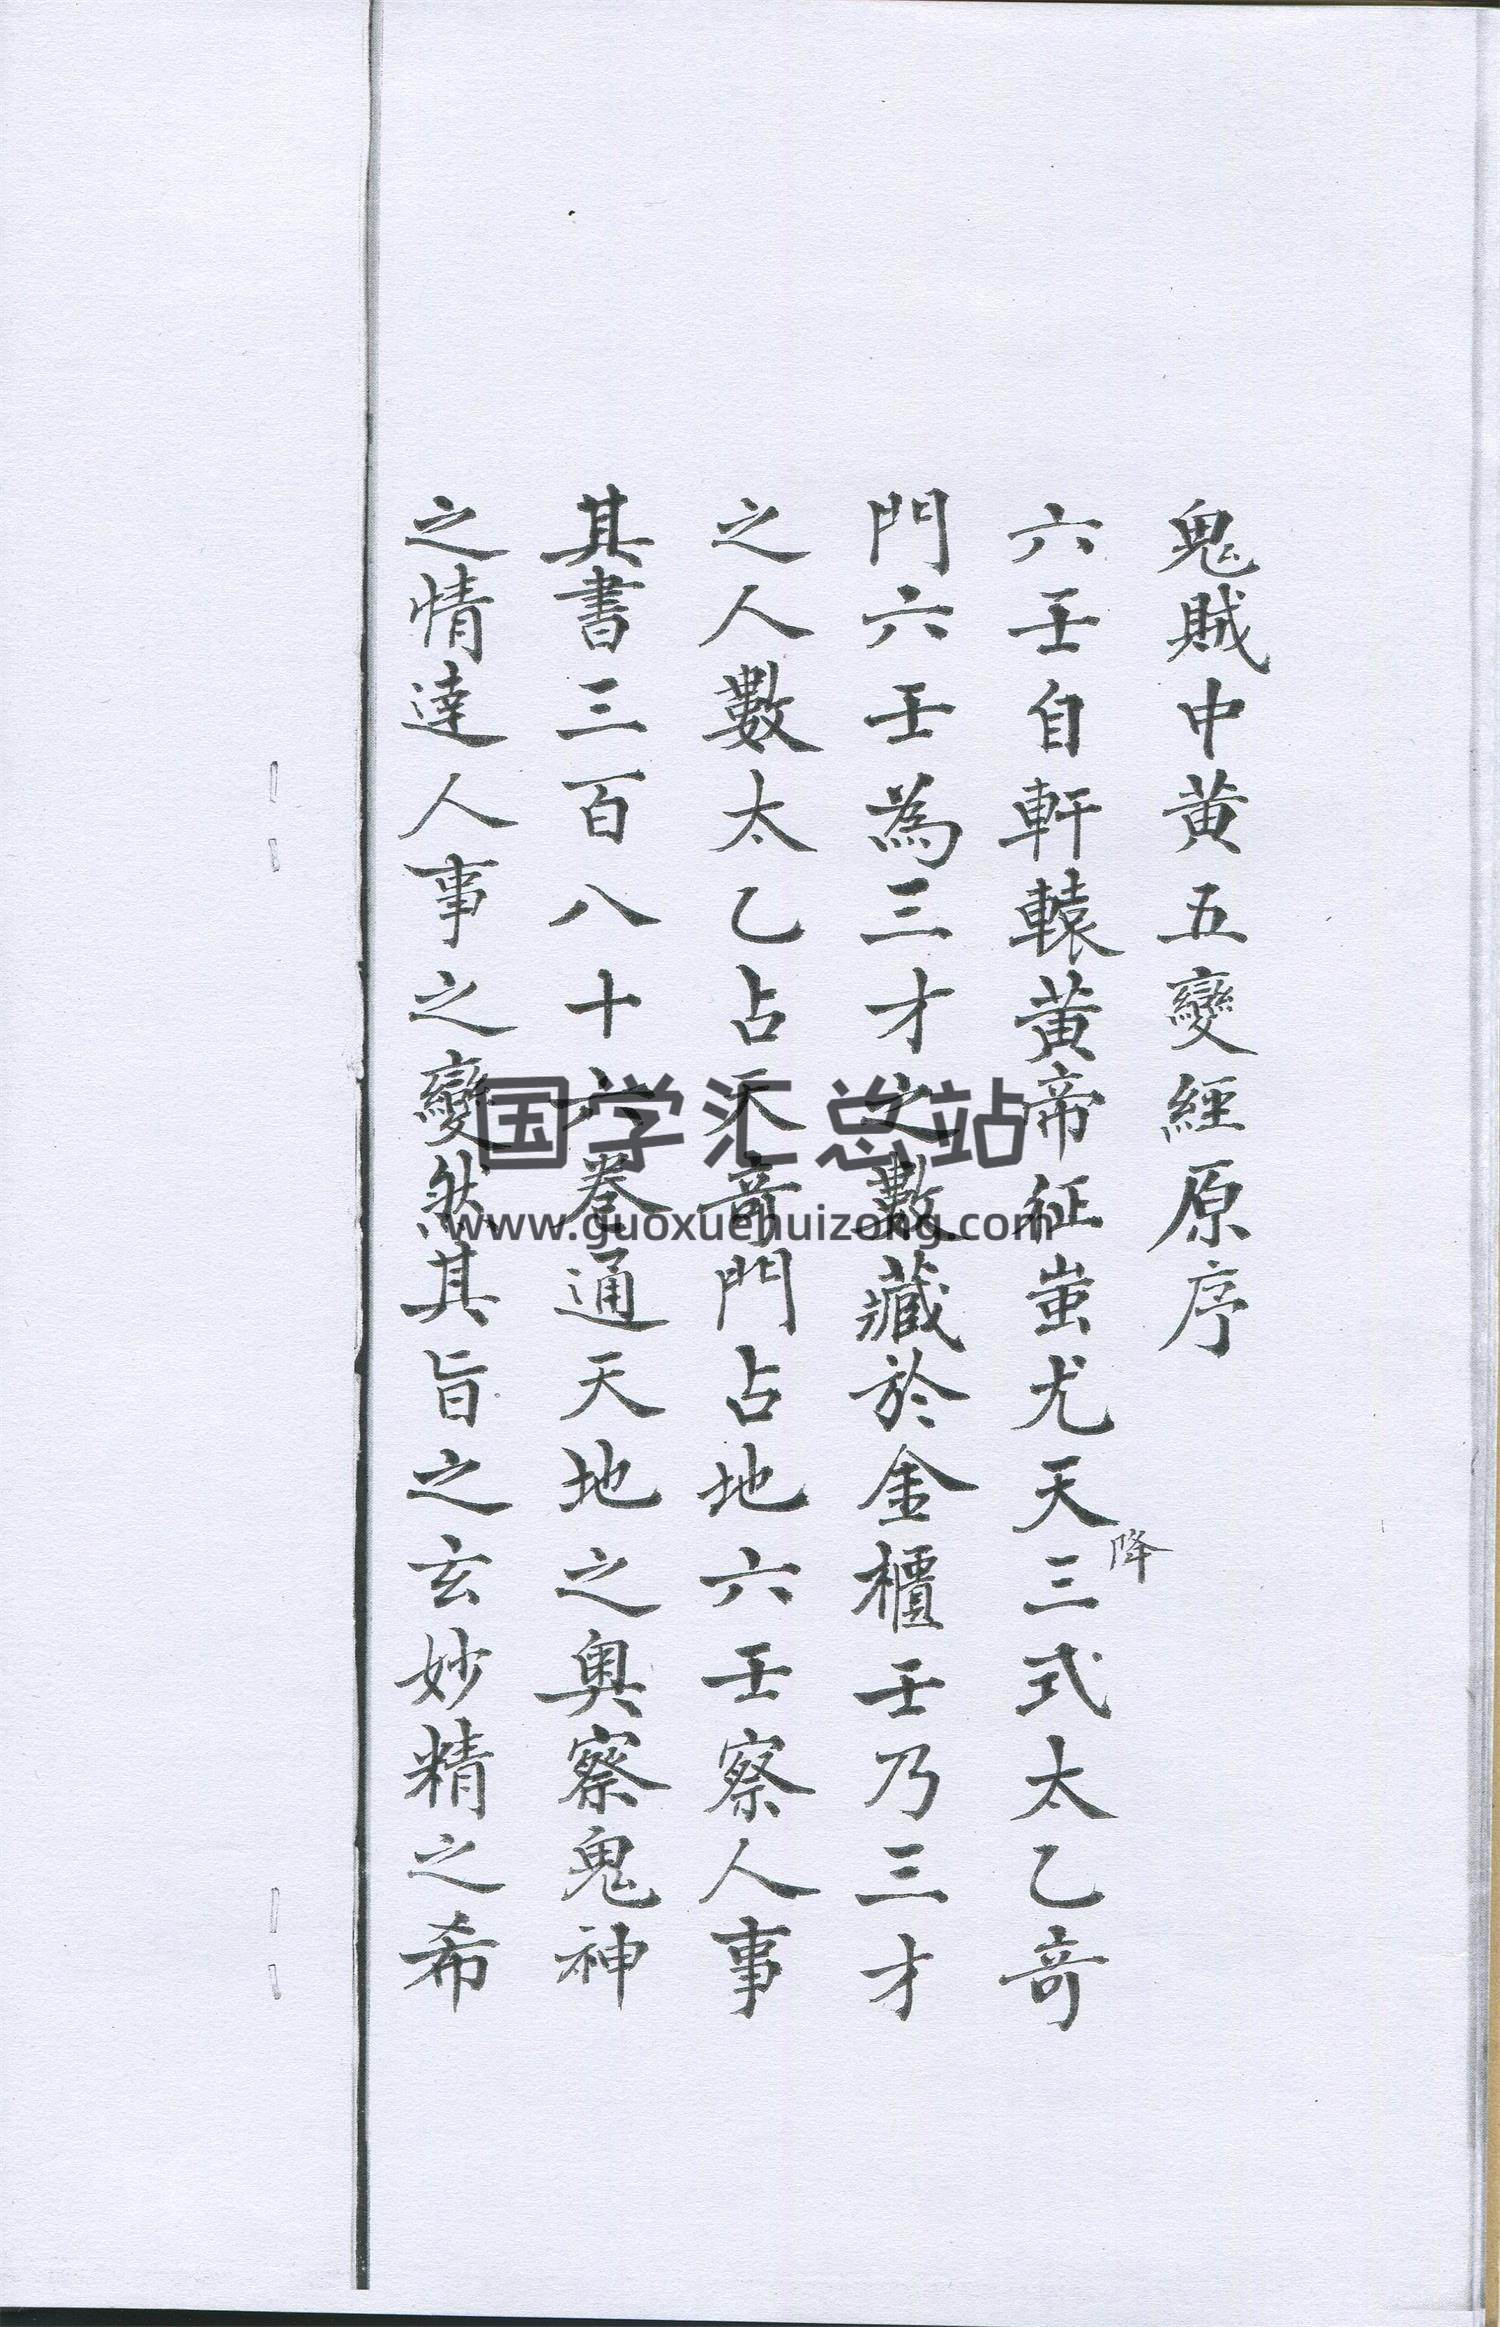 鬼賊中黄五變經原序
六壬自軒轅黄帝征蚩尤天降三式太乙奇
門六壬為三才之數藏於金櫃壬乃三才
之人數太乙占天奇門占地六壬察人事
其書三百八十六卷通天地之奥察鬼神
之情達人事之變然其旨之玄妙精之希
国学汇总站
www.guoxuehuizong.com